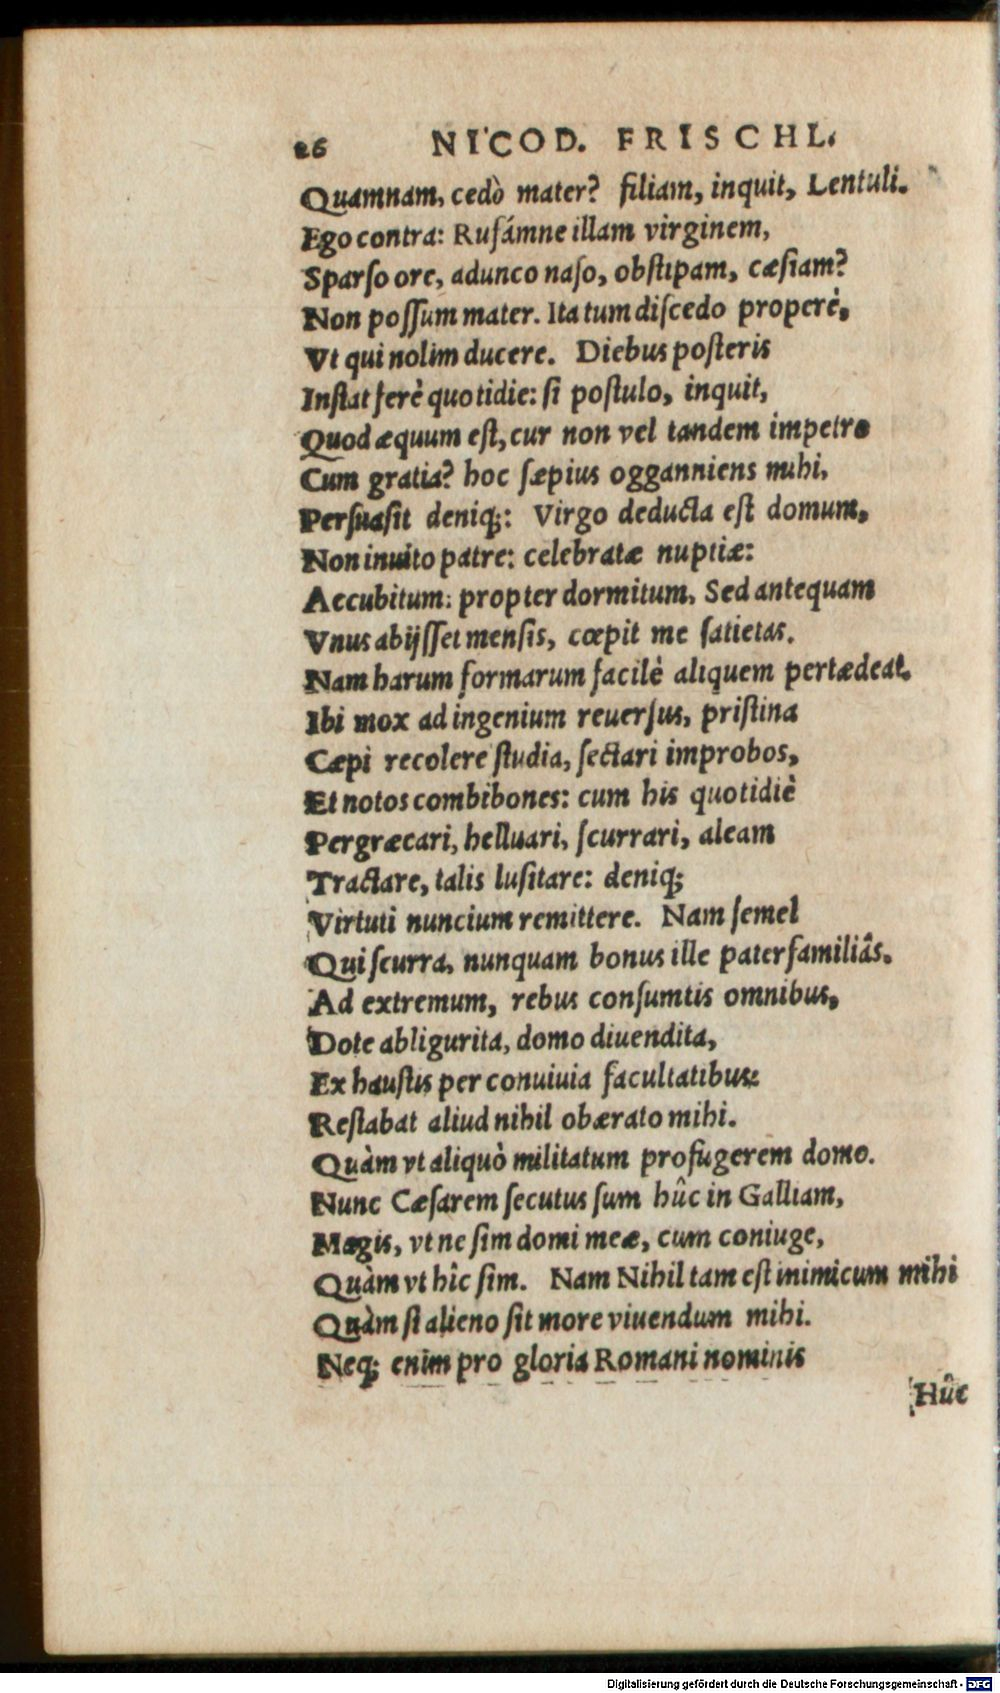 26 NICOD. FRISCHL.
Quamnam, cedò mater? filiam, inquit, Lentuli.
Ego contra: Rufámne illam virginem,
Sparſo ore, adunco naſo, obſtipam, cæſiam?
Non poſſum mater. Ita tum diſcedo properè,
Vt qui nolim ducere. Diebus poſteris
Inſtat ferè quotidie: ſi poſtulo, inquit,
Quod æquum eſt, cur non vel tandem impetro
Cum gratia? hoc ſæpius ogganniens mihi,
Perſuaſit deniq;: Virgo deducta eſt domum,
Non inuito patre: celebratæ nuptiæ:
Accubitum: propter dormitum. Sed antequam
Vnus abijſſet menſis, cœpit me ſatietas.
Nam harum formarum facilè aliquem pertædeat.
Ibi mox ad ingenium reuerſus, priſtina
Cæpi recolere ſtudia, ſectari improbos,
Et notos combibones: cum his quotidiè
Pergræcari, helluari, ſcurrari, aleam
Tractare, talis luſitare: deniq;
Virtuti nuncium remittere. Nam ſemel
Qui ſcurra, nunquam bonus ille pater familiâs.
Ad extremum, rebus conſumtis omnibus,
Dote abligurita, domo diuendita,
Exhauſtis per conuiuia facultatibus:
Reſtabat aliud nihil obærato mihi.
Quàm vt aliquò militatum profugerem domo.
Nunc Cæſarem ſecutus ſum hûc in Galliam,
Magis, vt ne ſim domi meæ, cum coniuge,
Quàm vt hîc ſim. Nam Nihil tam eſt inimicum mihi
Quàm ſi alieno ſit more viuendum mihi.
Neq; enim pro gloria Romani nominis
Hûc
Digitalisierung gefördert durch die Deutsche Forschungsgemeinschaft - DFG